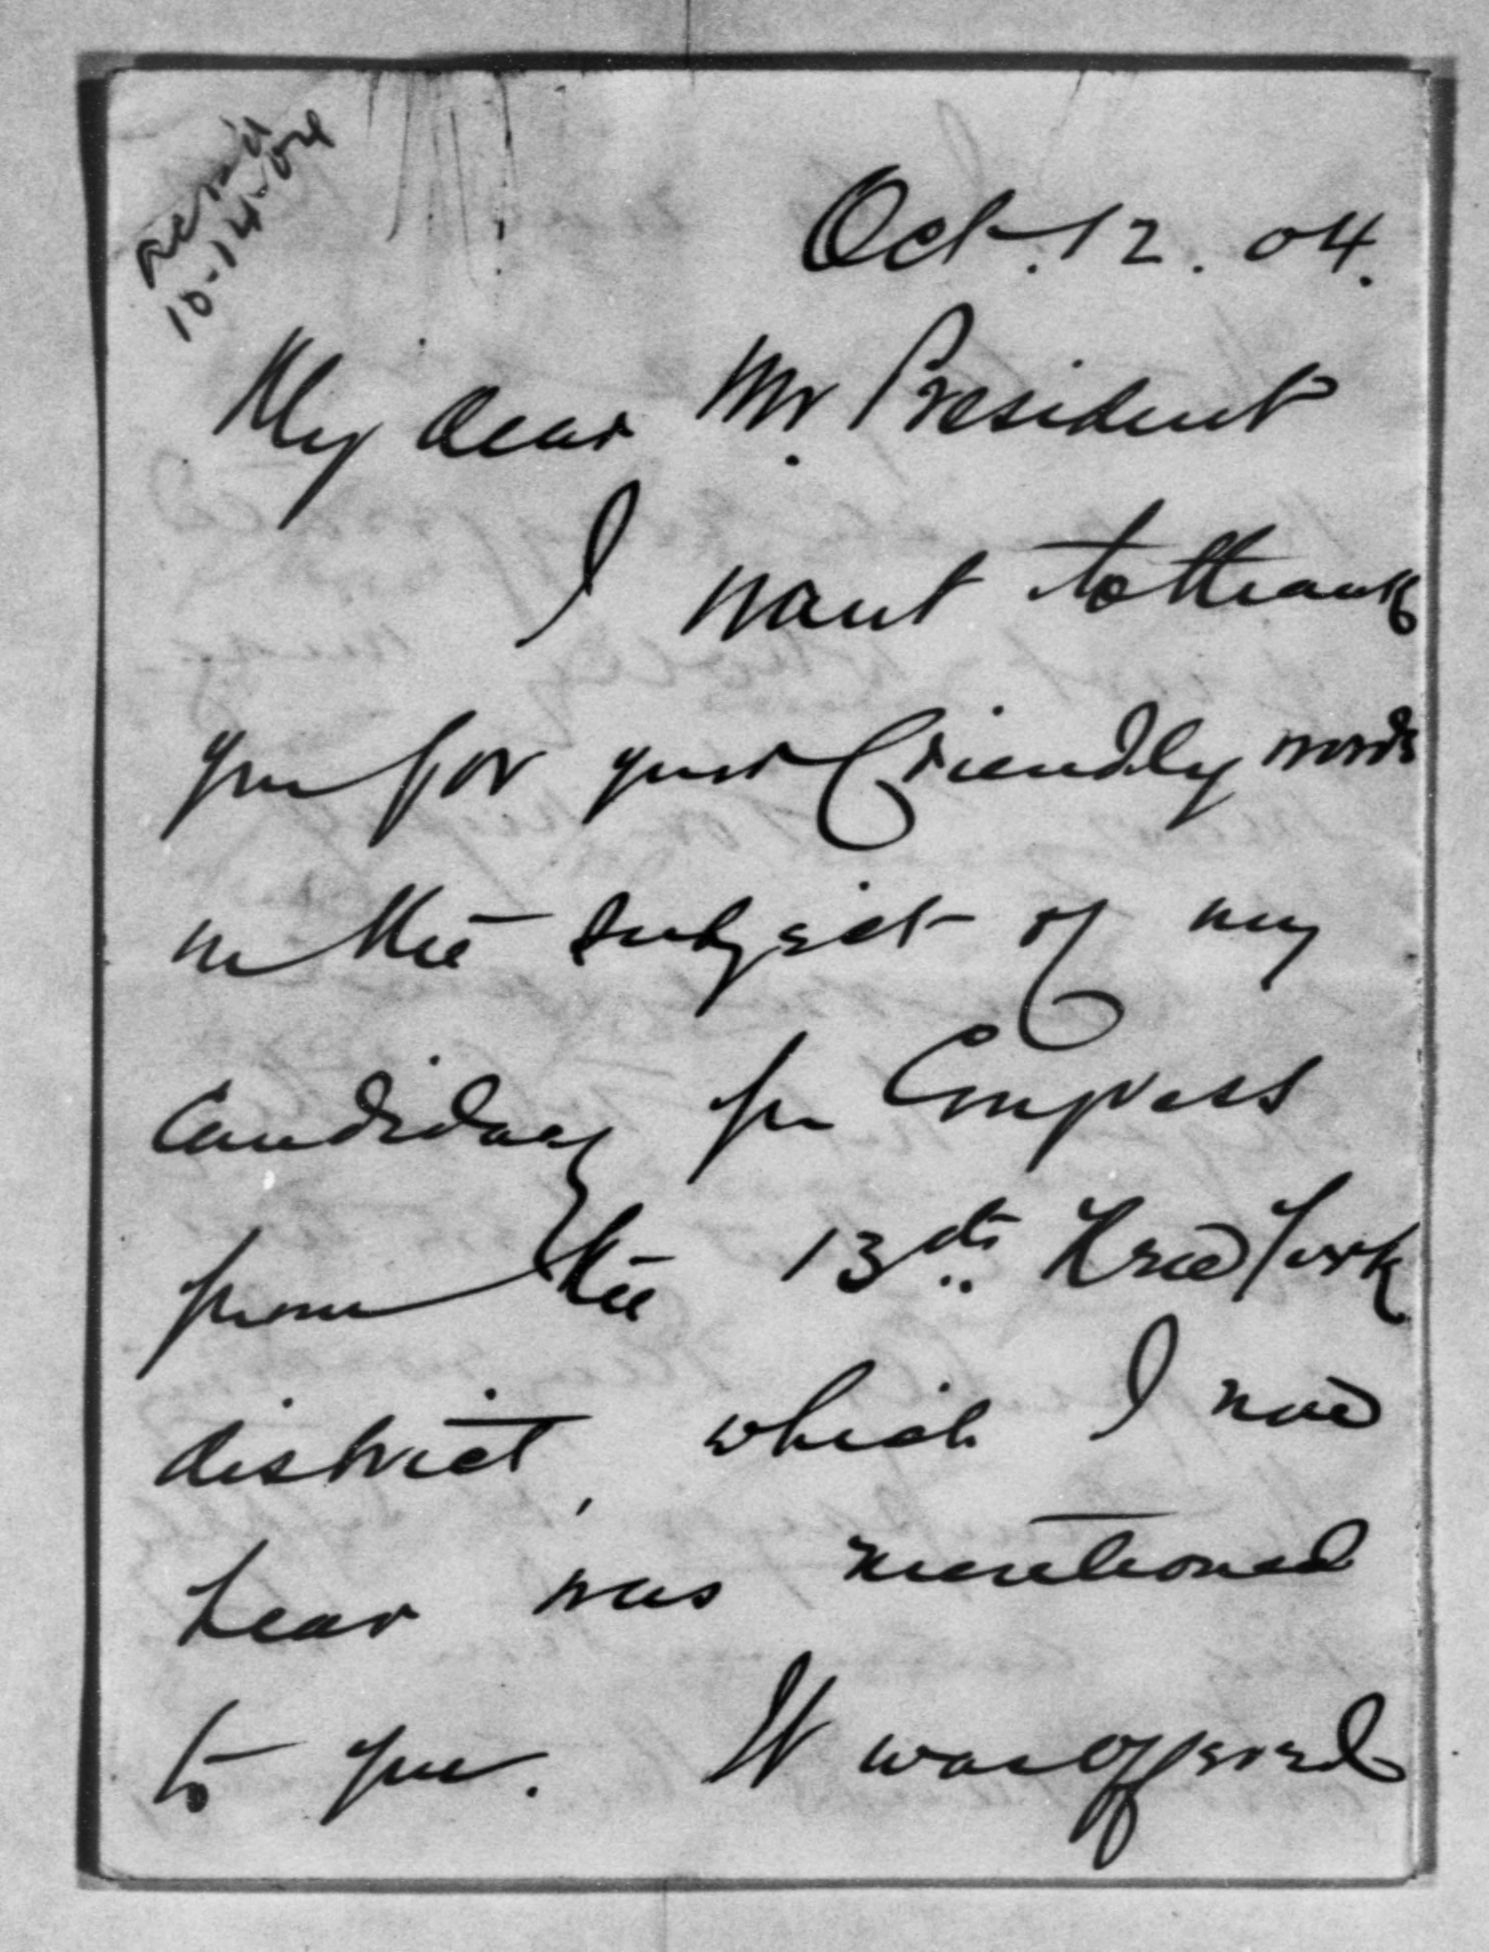 Rec'd
10-14-04
Oct. 12. 04.
My dear Mr. President
I want to thank
you for your friendly words
in the subject of my
Candidacy for Congress
from the 13th. New York
district, which I now
hear was mentioned
to you. It was offered